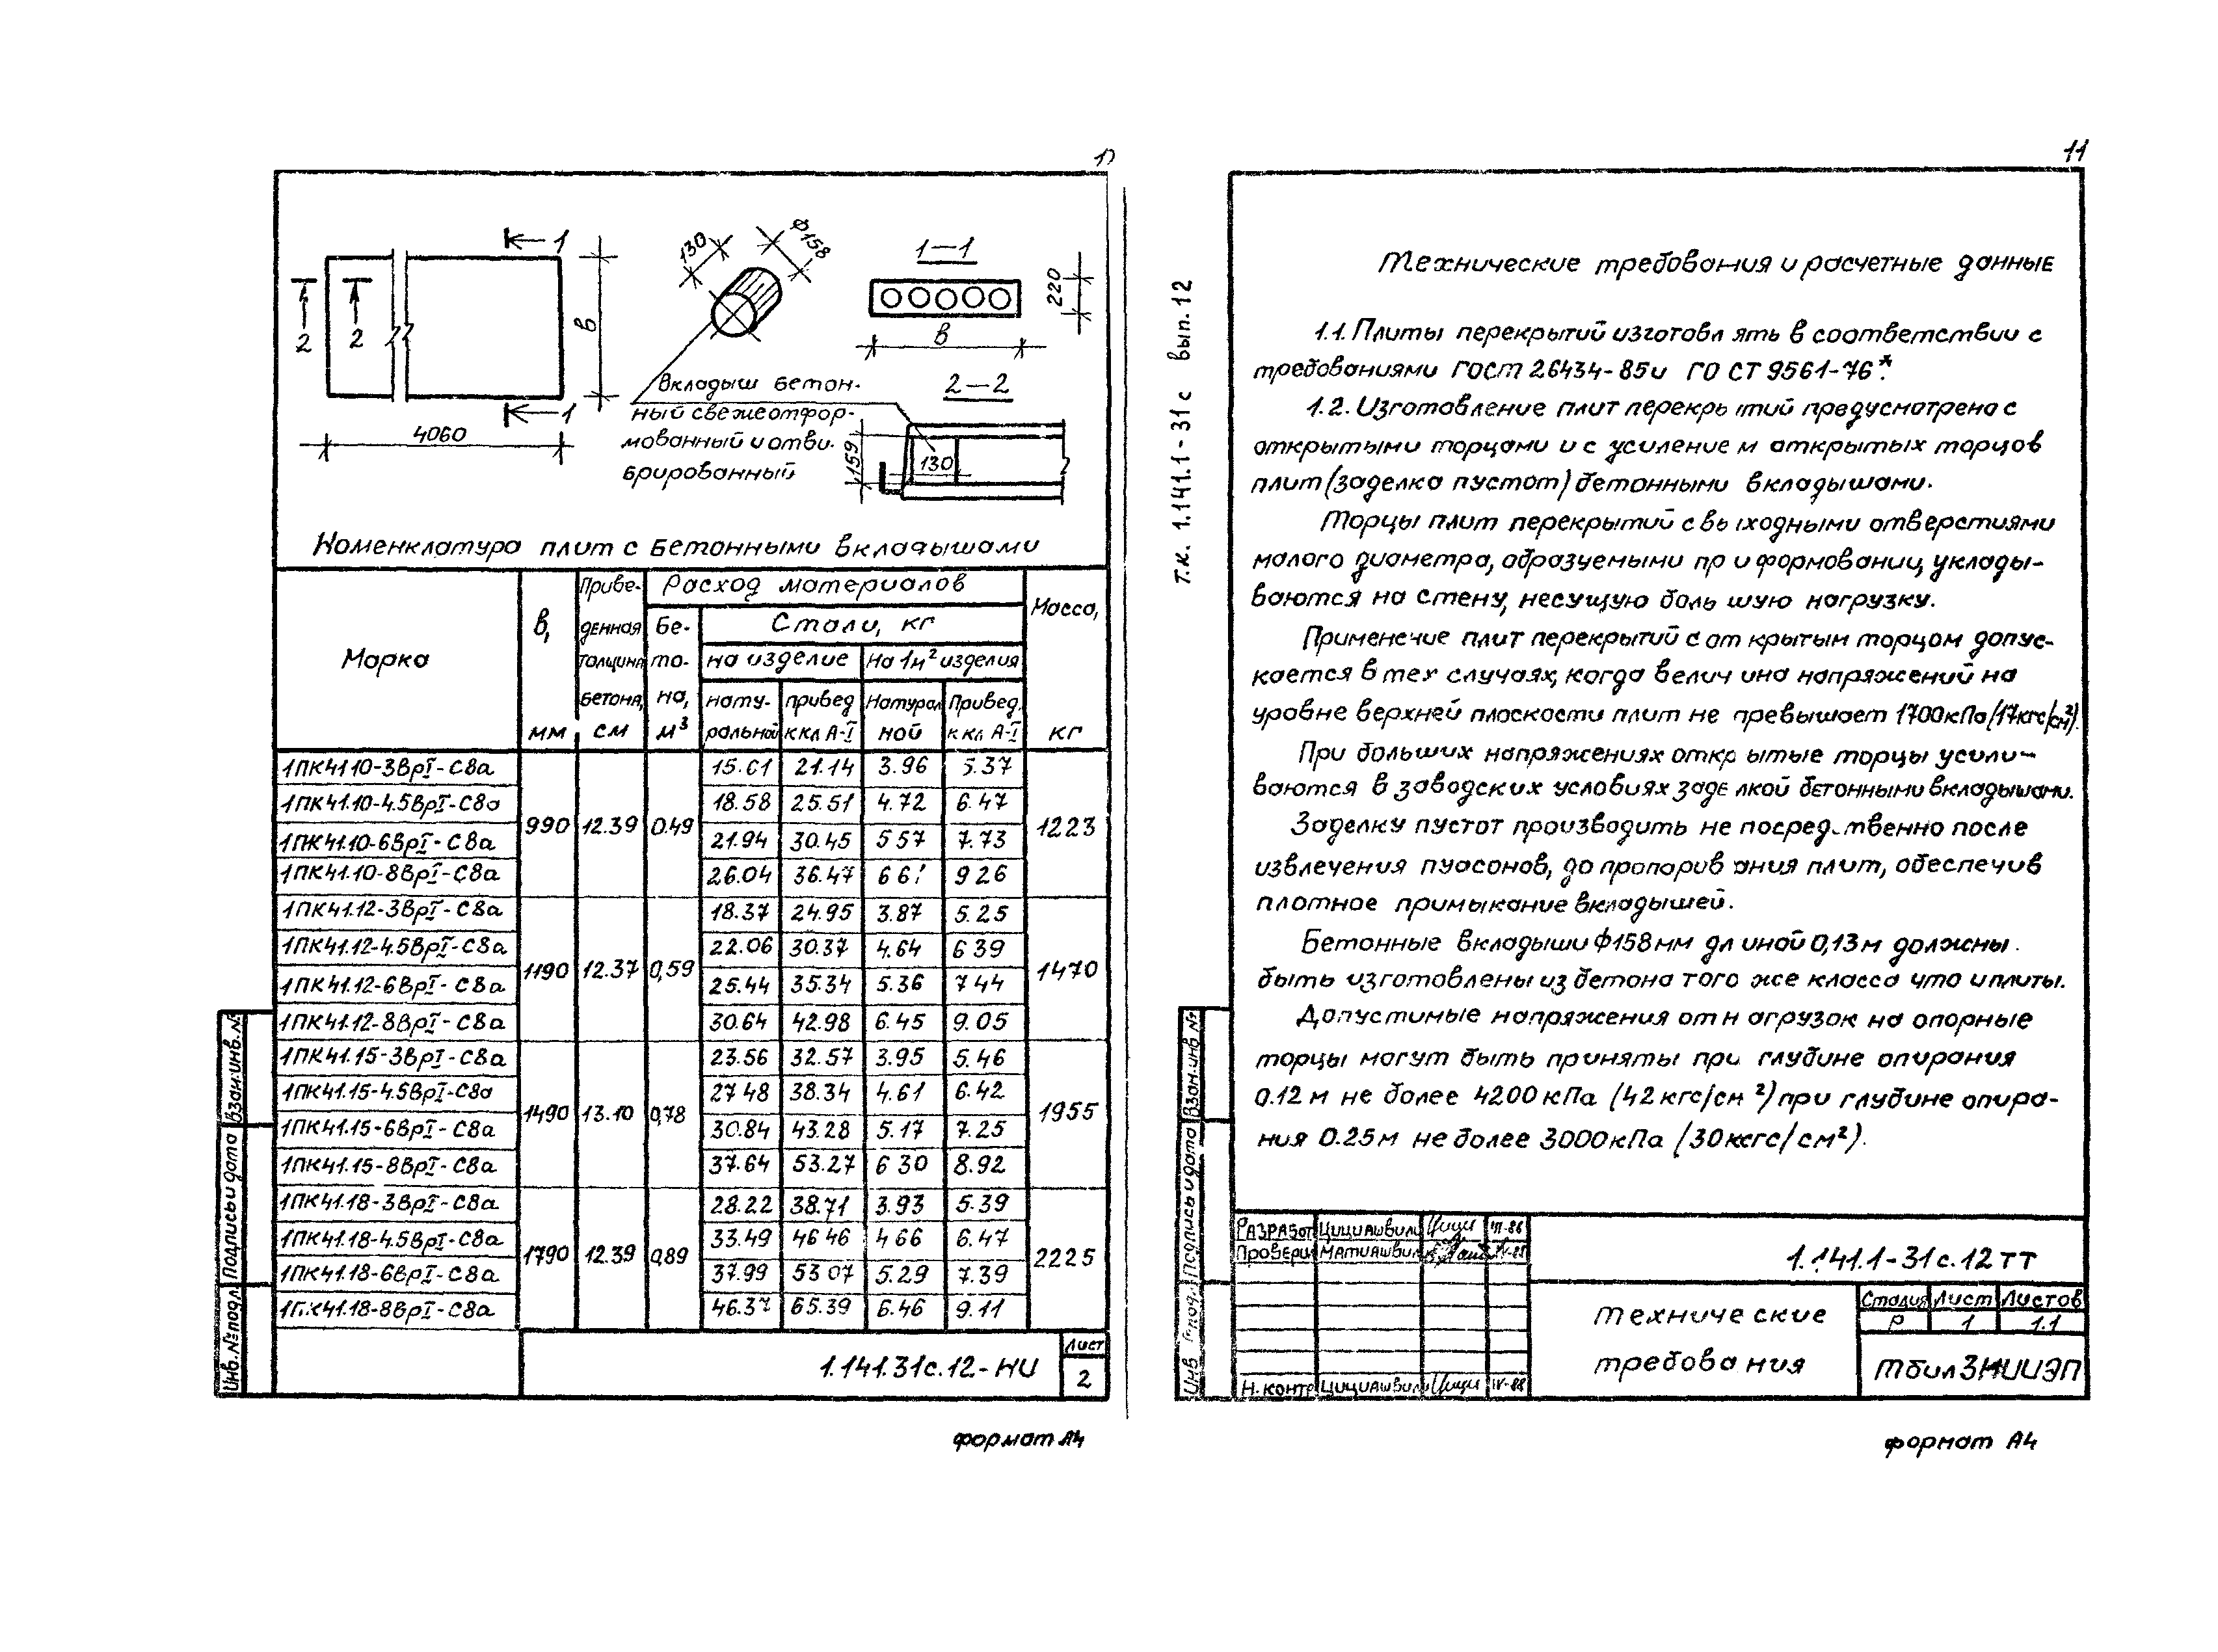 1
1
130
ф158
1—1
220
2
2
в
в
1
4060
Вкладыш бетон-
ный свежеотфор-
мованный и отви-
брированный
2—2
159
130
Номенклатура плит с бетонными вкладышами
Марка
в, мм
Приве-
денная
толщина
бетона,
см
Расход материалов
Бе-
то-
на,
м³
Стали, кг
на изделие
На 1м² изделия
нату-
ральной
привед
к кл А-I
Натурал
ной
Привед.
к кл А-I
Масса,
кг
1ПК41 10-3ВрI-С8а 990 12.39 0.49 15.61 21.14 3.96 5.37 1223
1ПК41.10-4.5ВрI-С8а 18.58 25.51 4.72 6.47
1ПК41.10-6ВрI-С8а 21.94 30.45 5 57 7.73
1ПК41.10-8ВрI-С8а 26.04 36.47 6 61 9 26
1ПК41.12-3ВрI-С8а 1190 12.37 0,59 18.37 24.95 3.87 5.25 1470
1ПК41.12-4.5ВрI-С8а 22.06 30.37 4.64 6 39
1ПК41.12-6ВрI-С8а 25.44 35.34 5.36 7 44
1ПК41.12-8ВрI-С8а 30.64 42.98 6.45 9.05
1ПК41.15-3ВрI-С8а 1490 13.10 0,78 23.56 32.57 3.95 5.46 1955
1ПК41.15-4.5ВрI-С8а 27 48 38.34 4.61 6.42
1ПК41.15-6ВрI-С8а 30.84 43.28 5.17 7.25
1ПК41.15-8ВрI-С8а 37.64 53.27 6 30 8.92
1ПК41.18-3ВрI-С8а 1790 12.39 0,89 28.22 38.71 3.93 5.39 2225
1ПК41.18-4.5ВрI-С8а 33.49 46 46 4 66 6.47
1ПК41.18-6ВрI-С8а 37.99 53 07 5.29 7.39
1ПК41.18-8ВрI-С8а 46.37 65.39 6.46 9.11
Взам.инв.№
Подпись и дата
Инв.№ подл
1.141.31с.12-НИ
Лист
2
формат А4
11
т.к. 1.141.1-31с вып.12
Технические требования и расчетные данные
1.1. Плиты перекрытий изготовлять в соответствии с
требованиями ГОСТ 26434-85 и ГОСТ 9561-76*.
1.2. Изготовление плит перекрытий предусмотрено с
открытыми торцами и с усилением открытых торцов
плит (заделка пустот) бетонными вкладышами.
Торцы плит перекрытий с выходными отверстиями
малого диаметра, образуемыми при формовании, уклады-
ваются на стену, несущую большую нагрузку.
Применение плит перекрытий с открытым торцом допус-
кается в тех случаях, когда величина напряжений на
уровне верхней плоскости плит не превышает 1700кПа (17кгс/см²).
При больших напряжениях открытые торцы усили-
ваются в заводских условиях заделкой бетонными вкладышами.
Заделку пустот производить непосредственно после
извлечения пуасонов, до пропаривания плит, обеспечив
плотное примыкание вкладышей.
Бетонные вкладыши ф158мм длиной 0,13м должны
быть изготовлены из бетона того же класса что и плиты.
Допустимые напряжения от нагрузок на опорные
торцы могут быть приняты при глубине опирания
0.12 м не более 4200 кПа (42 кгс/см²) при глубине опира-
ния 0.25м не более 3000кПа (30кгс/см²).
Взам.инв №
Подпись и дата
Разработ Цициашвили
Провери Матиашвили
Н.контр Цициашвили IV-88
1.141.1-31с.12ТТ
Технические
требования
Стадия Лист Листов
Р 1 1.1
ТбилЗНИИЭП
формат А4